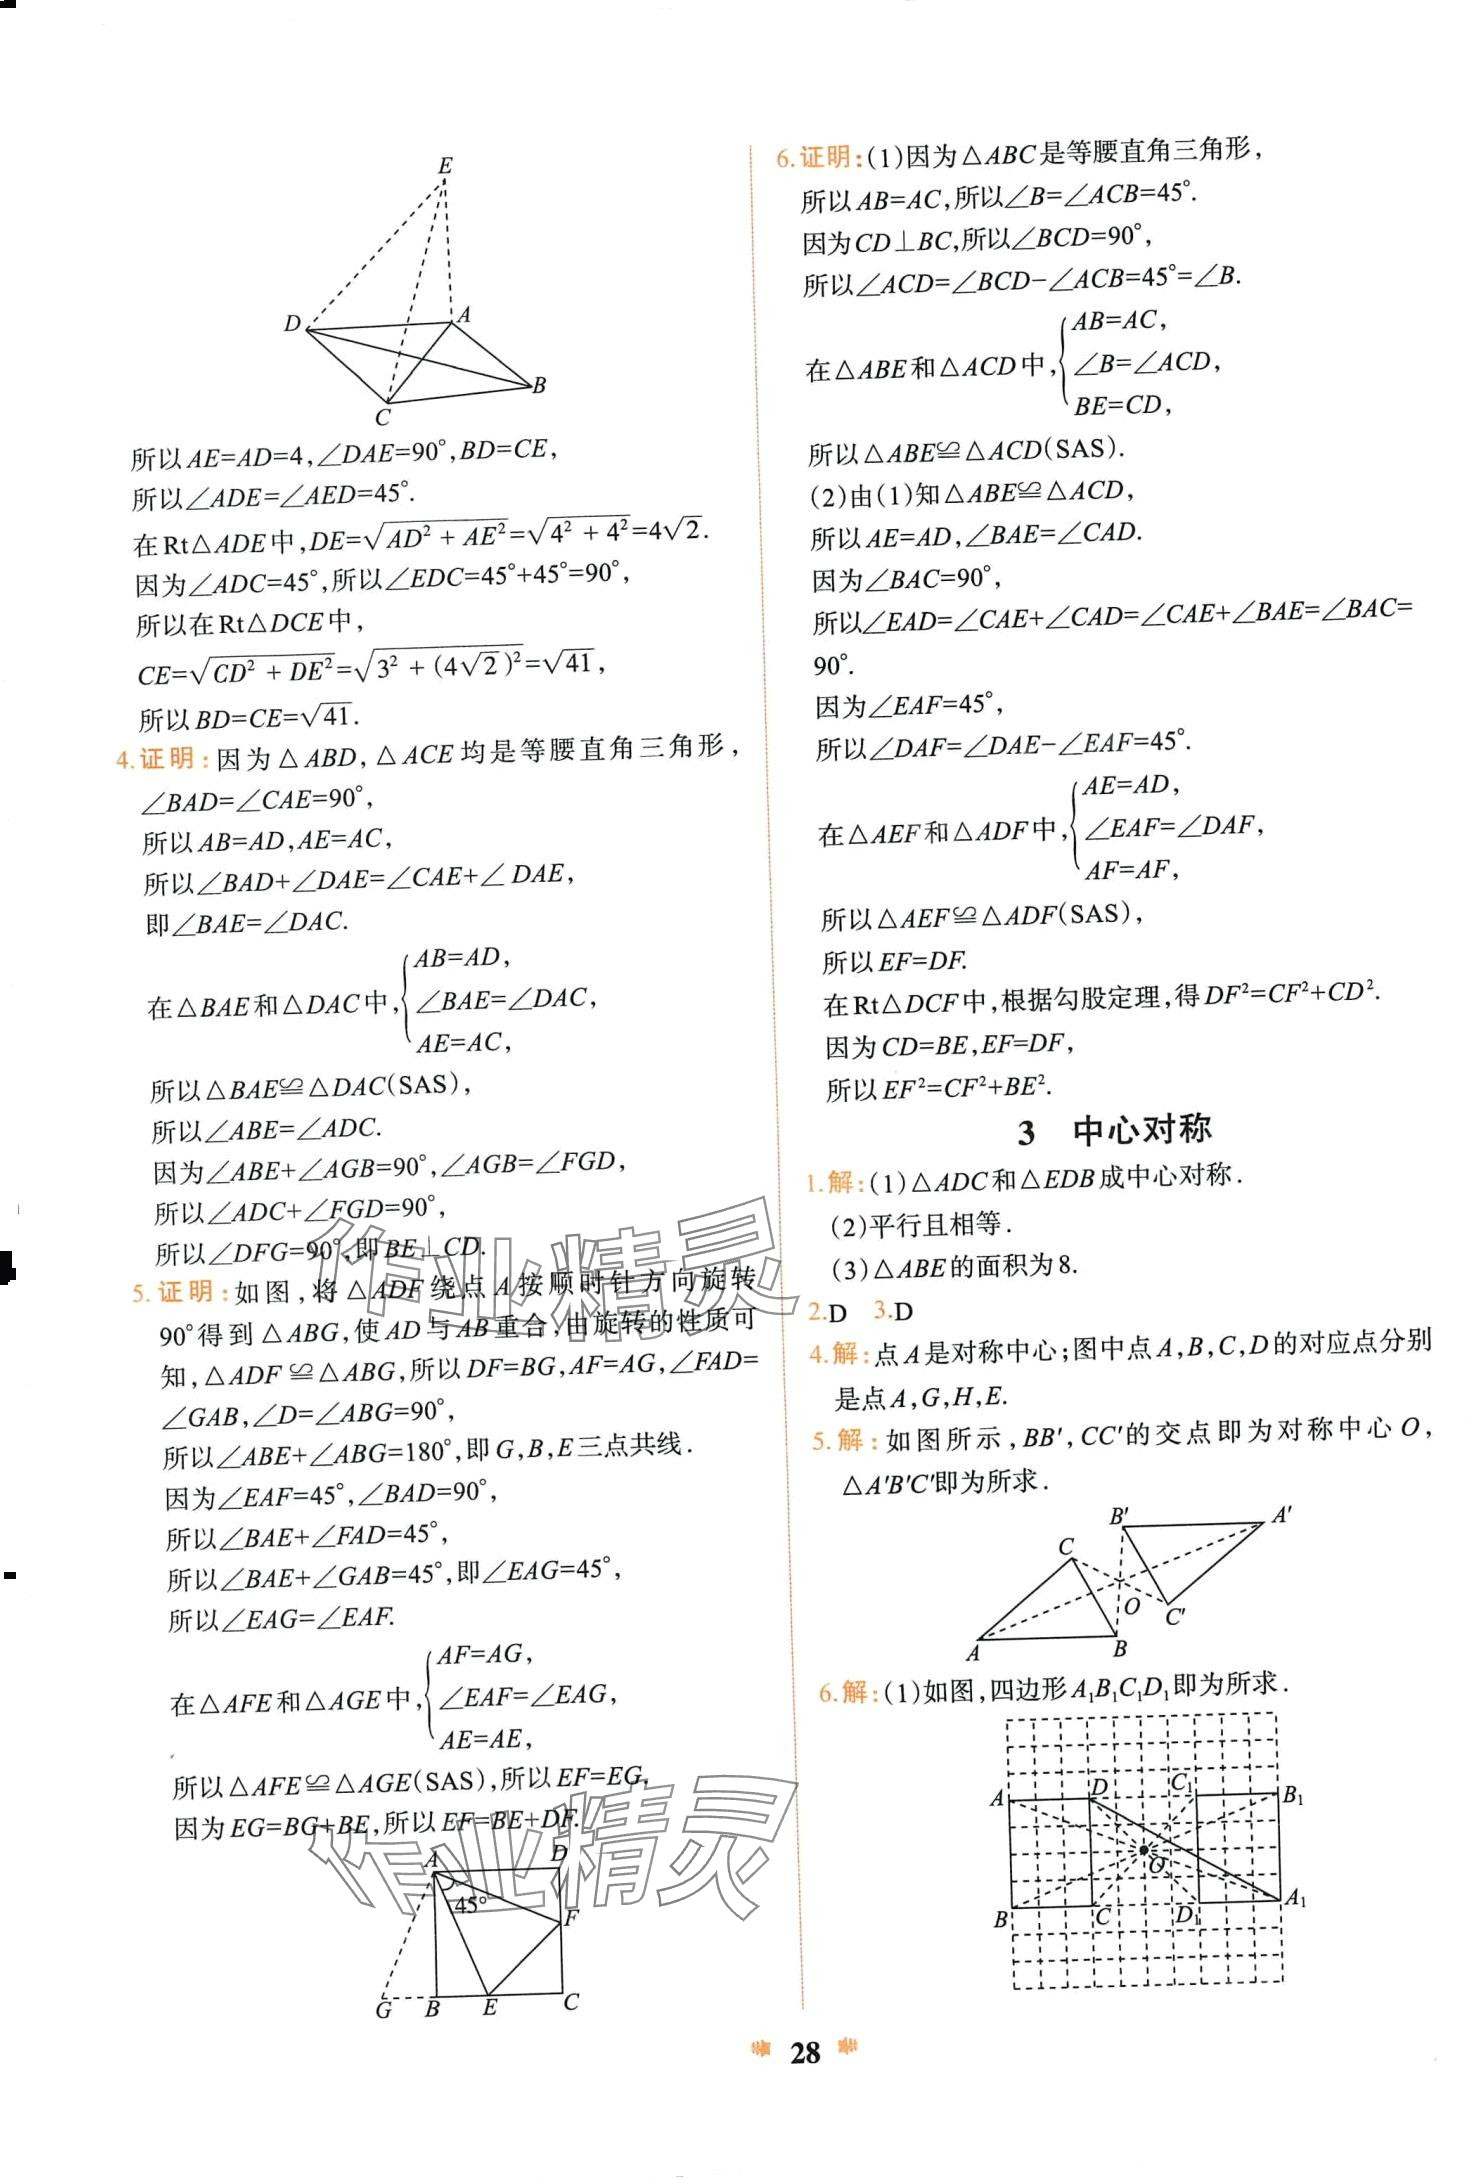 E
D
A
B
C
所以AE=AD=4,∠DAE=90°,BD=CE,
所以∠ADE=∠AED=45°.
在Rt△ADE中,DE=√(AD²+AE²)=√(4²+4²)=4√2.
因为∠ADC=45°,所以∠EDC=45°+45°=90°,
所以在Rt△DCE中,
CE=√(CD²+DE²)=√(3²+(4√2)²)=√41,
所以BD=CE=√41.
4.证明:因为△ABD,△ACE均是等腰直角三角形,
∠BAD=∠CAE=90°,
所以AB=AD,AE=AC,
所以∠BAD+∠DAE=∠CAE+∠DAE,
即∠BAE=∠DAC.
AB=AD,
在△BAE和△DAC中,{∠BAE=∠DAC,
AE=AC,
所以△BAE≌△DAC(SAS),
所以∠ABE=∠ADC.
因为∠ABE+∠AGB=90°,∠AGB=∠FGD,
所以∠ADC+∠FGD=90°,
所以∠DFG=90°,即BE⊥CD.
5.证明:如图,将△ADF绕点A按顺时针方向旋转
90°得到△ABG,使AD与AB重合,由旋转的性质可
知,△ADF≌△ABG,所以DF=BG,AF=AG,∠FAD=
∠GAB,∠D=∠ABG=90°,
所以∠ABE+∠ABG=180°,即G,B,E三点共线.
因为∠EAF=45°,∠BAD=90°,
所以∠BAE+∠FAD=45°,
所以∠BAE+∠GAB=45°,即∠EAG=45°,
所以∠EAG=∠EAF.
AF=AG,
在△AFE和△AGE中,{∠EAF=∠EAG,
AE=AE,
所以△AFE≌△AGE(SAS),所以EF=EG,
因为EG=BG+BE,所以EF=BE+DF.
A
D
45°
F
G
B
E
C
6.证明:(1)因为△ABC是等腰直角三角形,
所以AB=AC,所以∠B=∠ACB=45°.
因为CD⊥BC,所以∠BCD=90°,
所以∠ACD=∠BCD-∠ACB=45°=∠B.
AB=AC,
在△ABE和△ACD中,{∠B=∠ACD,
BE=CD,
所以△ABE≌△ACD(SAS).
(2)由(1)知△ABE≌△ACD,
所以AE=AD,∠BAE=∠CAD.
因为∠BAC=90°,
所以∠EAD=∠CAE+∠CAD=∠CAE+∠BAE=∠BAC=
90°.
因为∠EAF=45°,
所以∠DAF=∠DAE-∠EAF=45°.
AE=AD,
在△AEF和△ADF中,{∠EAF=∠DAF,
AF=AF,
所以△AEF≌△ADF(SAS),
所以EF=DF.
在Rt△DCF中,根据勾股定理,得DF²=CF²+CD².
因为CD=BE,EF=DF,
所以EF²=CF²+BE².
3 中心对称
1.解:(1)△ADC和△EDB成中心对称.
(2)平行且相等.
(3)△ABE的面积为8.
2.D 3.D
4.解:点A是对称中心;图中点A,B,C,D的对应点分别
是点A,G,H,E.
5.解:如图所示,BB′,CC′的交点即为对称中心O,
△A′B′C′即为所求.
B′
A′
C
O
C′
A
B
6.解:(1)如图,四边形A₁B₁C₁D₁即为所求.
A
D
C₁
B₁
O
B
C
D₁
A₁
28
作业精灵
作业精灵